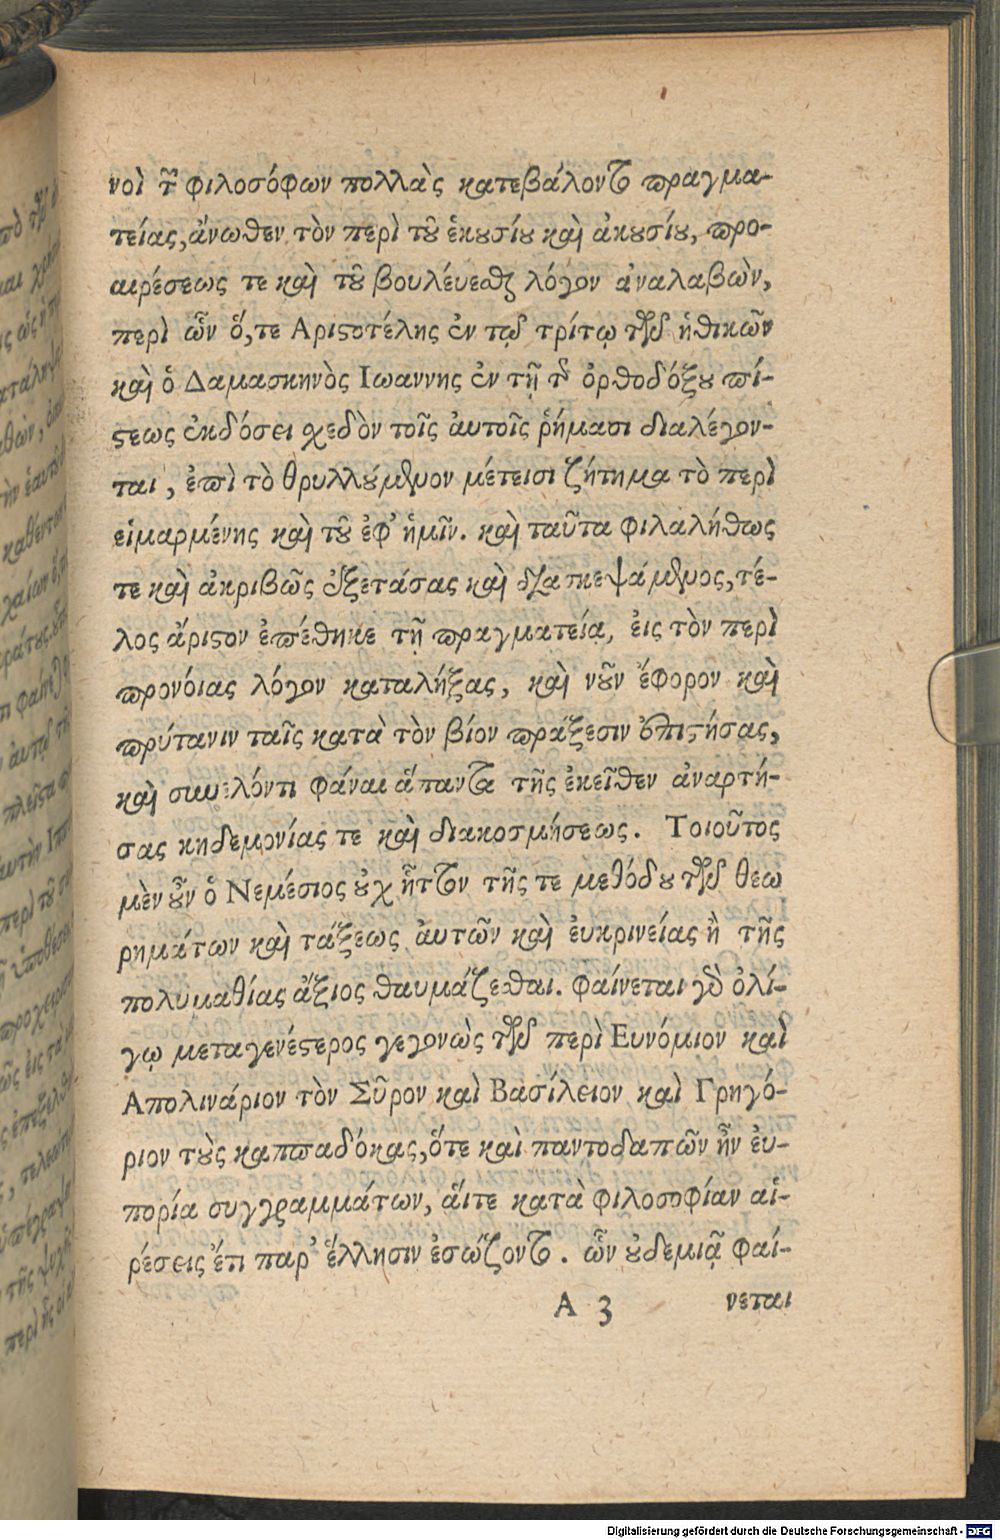 νοὶ τῶν φιλοσόφων πολλὰς κατεβάλοντο πραγμα-
τείας, ἄνωθεν τὸν περὶ τοῦ ἑκουσίου καὶ ἀκουσίου, προ-
αιρέσεως τε καὶ τοῦ βουλέυεσθαι λόγον ἀναλαβὼν,
περὶ ὧν ὅ,τε Αριστοτέλης ἐν τῷ τρίτῳ τῶν ἠθικῶν
καὶ ὁ Δαμασκηνὸς Ιωαννης ἐν τῇ τῆς ὀρθοδόξου πί-
στεως ἐκδόσει σχεδὸν τοῖς ἀυτοῖς ῥήμασι διαλέγον-
ται, ἐπὶ τὸ θρυλλούμενον μέτεισι ζήτημα τὸ περὶ
εἱμαρμένης καὶ τοῦ ἐφ᾽ ἡμῖν. καὶ ταῦτα φιλαλήθως
τε καὶ ἀκριβῶς ἐξετάσας καὶ διασκεψάμενος, τέ-
λος ἄριστον ἐπέθηκε τῇ πραγματείᾳ, ἐις τὸν περὶ
προνόιας λόγον καταλήξας, καὶ νοῦν ἔφορον καὶ
πρύτανιν ταῖς κατὰ τὸν βίον πράξεσιν ἐπιστήσας,
καὶ συνελόντι φάναι ἅπαντα τῆς ἐκεῖθεν ἀναρτή-
σας κηδεμονίας τε καὶ διακοσμήσεως. Τοιοῦτος
μὲν οὖν ὁ Νεμέσιος οὐχ ἧττον τῆς τε μεθόδου τῶν θεω
ρημάτων καὶ τάξεως ἀυτῶν καὶ ἐυκρινείας ἢ τῆς
πολυμαθίας ἄξιος θαυμάζεσθαι. Φαίνεται γὰρ ὀλί-
γῳ μεταγενέστερος γεγονὼς τῶν περὶ Ευνόμιον καὶ
Απολινάριον τὸν Σῦρον καὶ Βασίλειον καὶ Γρηγό-
ριον τοὺς καππαδόκας, ὅτε καὶ παντοδαπῶν ἦν ἐυ-
πορία συγγραμμάτων, ἅιτε κατὰ φιλοσοφίαν αἱ-
ρέσεις ἔτι παρ᾽ ἕλλησιν ἐσώζοντο. ὧν οὐδεμιᾷ φαί-
A 3 νεται
Digitalisierung gefördert durch die Deutsche Forschungsgemeinschaft - DFG